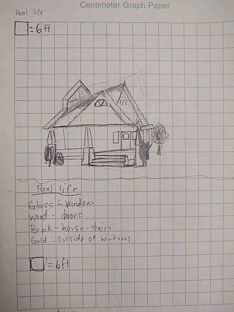 Centimeter Graph Paper
Real life
= 6 ft
Real life
Glass - Windows
Wood - doors
Brick - house - stairs
Gold - outside of windows
= 6ft